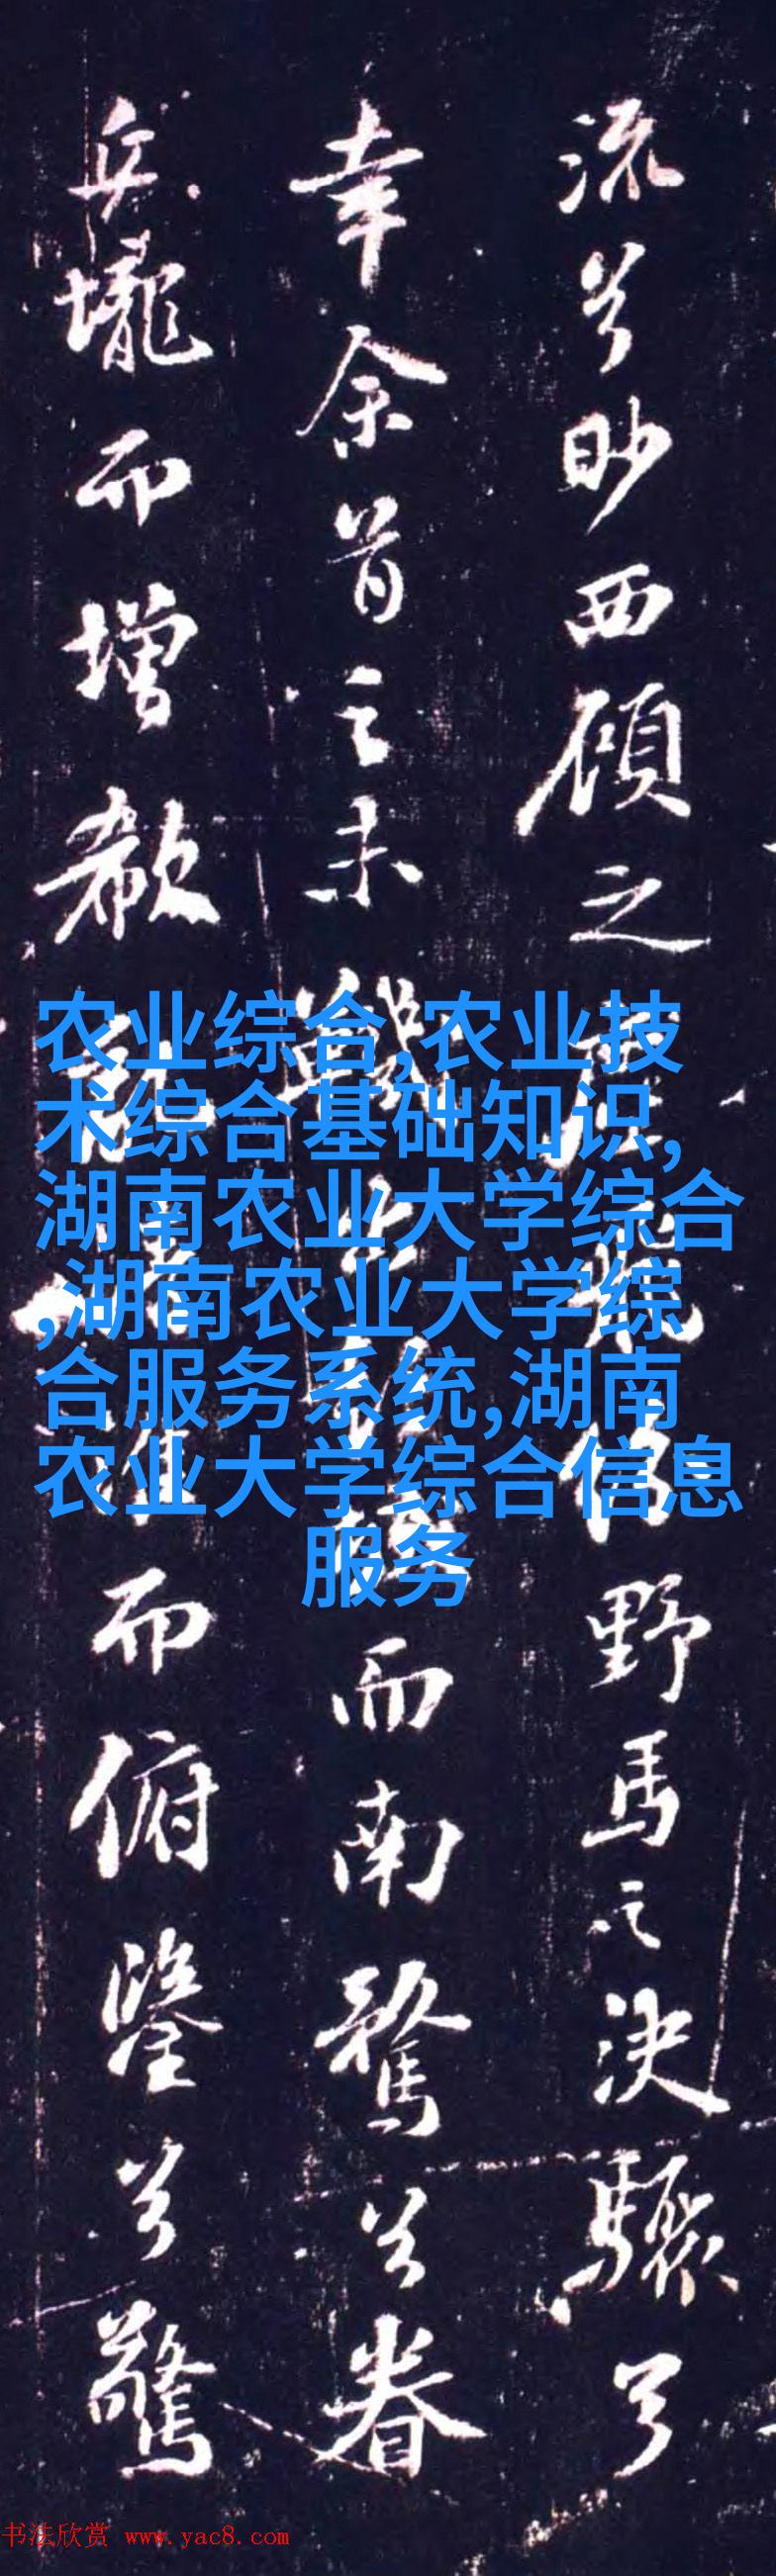 流兮眇西顧之
野馬之決驟兮
幸余首之未
而南騖兮眷
丘壠而增欷
而俯鑒兮驚
农业综合,农业技
术综合基础知识,
湖南农业大学综合
,湖南农业大学综
合服务系统,湖南
农业大学综合信息
服务
书法欣赏 www.yac8.com